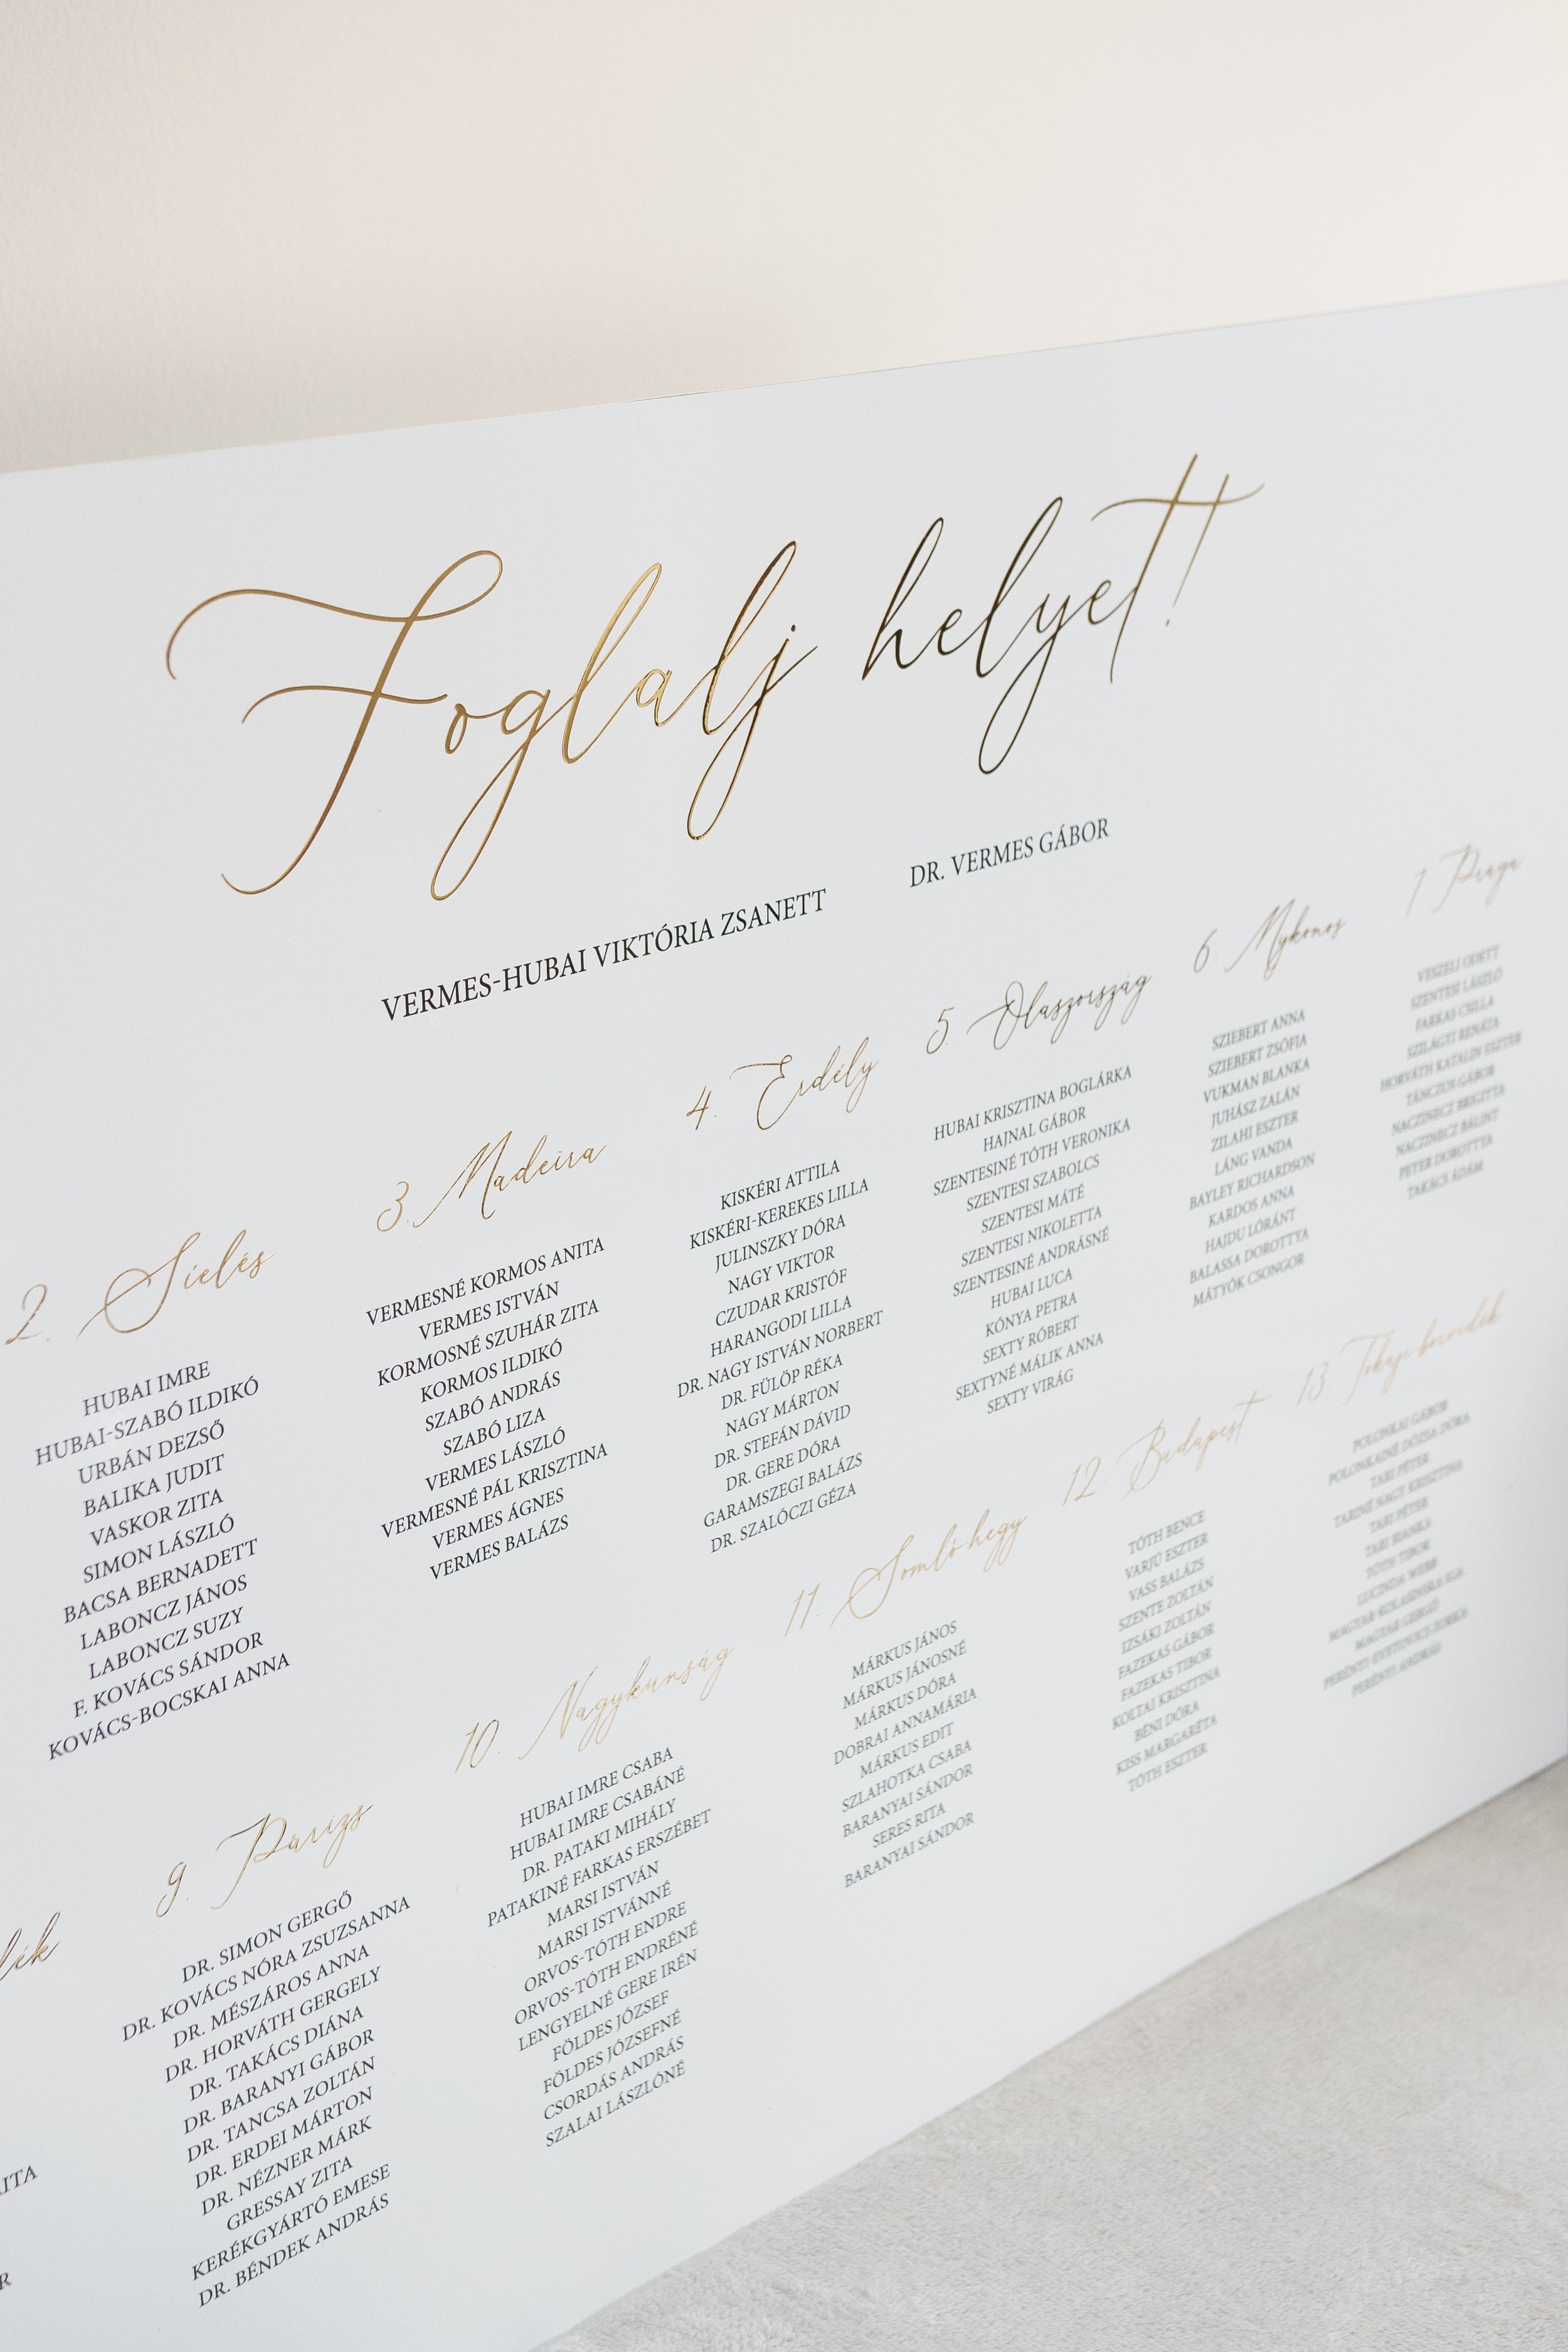 Foglalj helyet!
VERMES-HUBAI VIKTÓRIA ZSANETT
DR. VERMES GÁBOR
2. Síelés
HUBAI IMRE
HUBAI-SZABÓ ILDIKÓ
URBÁN DEZSŐ
BALIKA JUDIT
VASKOR ZITA
SIMON LÁSZLÓ
BACSA BERNADETT
LABONCZ JÁNOS
LABONCZ SUZY
F. KOVÁCS SÁNDOR
KOVÁCS-BOCSKAI ANNA
3. Madeira
VERMESNÉ KORMOS ANITA
VERMES ISTVÁN
KORMOSNÉ SZUHÁR ZITA
KORMOS ILDIKÓ
SZABÓ ANDRÁS
SZABÓ LIZA
VERMES LÁSZLÓ
VERMESNÉ PÁL KRISZTINA
VERMES ÁGNES
VERMES BALÁZS
4. Erdély
KISKÉRI ATTILA
KISKÉRI-KEREKES LILLA
JULINSZKY DÓRA
NAGY VIKTOR
CZUDAR KRISTÓF
HARANGODI LILLA
DR. NAGY ISTVÁN NORBERT
DR. FÜLÖP RÉKA
NAGY MÁRTON
DR. STEFÁN DÁVID
DR. GERE DÓRA
GARAMSZEGI BALÁZS
DR. SZALÓCZI GÉZA
5. Olaszország
HUBAI KRISZTINA BOGLÁRKA
HAJNAL GÁBOR
SZENTESINÉ TÓTH VERONIKA
SZENTESI SZABOLCS
SZENTESI MÁTÉ
SZENTESI NIKOLETTA
SZENTESINÉ ANDRÁSNÉ
HUBAI LUCA
KÓNYA PETRA
SEXTY RÓBERT
SEXTYNÉ MÁLIK ANNA
SEXTY VIRÁG
6. Mykonos
SZIEBERT ANNA
SZIEBERT ZSÓFIA
VUKMAN BLANKA
JUHÁSZ ZALÁN
ZILAHI ESZTER
LÁNG VANDA
BAYLEY RICHARDSON
KARDOS ANNA
HAJDU LÓRÁNT
BALASSA DOROTTYA
MÁTYÓK CSONGOR
7. Prága
VESZELI ODETT
SZENTESI LÁSZLÓ
FARKAS CSILLA
SZILÁGYI RENÁTA
HORVÁTH KATALIN ESZTER
TÁNCZOS GÁBOR
NACZINECZ BRIGITTA
NACZINECZ BÁLINT
PETER DOROTTYA
TAKÁCS ÁDÁM
9. Párizs
DR. SIMON GERGŐ
DR. KOVÁCS NÓRA ZSUZSANNA
DR. MÉSZÁROS ANNA
DR. HORVÁTH GERGELY
DR. TAKÁCS DIÁNA
DR. BARANYI GÁBOR
DR. TANCSA ZOLTÁN
DR. ERDEI MÁRTON
DR. NÉZNER MÁRK
GRESSAY ZITA
KERÉKGYÁRTÓ EMESE
DR. BÉNDEK ANDRÁS
10. Nagykunság
HUBAI IMRE CSABA
HUBAI IMRE CSABÁNÉ
DR. PATAKI MIHÁLY
PATAKINÉ FARKAS ERSZÉBET
MARSI ISTVÁN
MARSI ISTVÁNNÉ
ORVOS-TÓTH ENDRE
ORVOS-TÓTH ENDRÉNÉ
LENGYELNÉ GERE IRÉN
FÖLDES JÓZSEF
FÖLDES JÓZSEFNÉ
CSORDÁS ANDRÁS
SZALAI LÁSZLÓNÉ
11. Somló-hegy
MÁRKUS JÁNOS
MÁRKUS JÁNOSNÉ
MÁRKUS DÓRA
DOBRAI ANNAMÁRIA
MÁRKUS EDIT
SZLAHOTKA CSABA
BARANYAI SÁNDOR
SERES RITA
BARANYAI SÁNDOR
12. Budapest
TÓTH BENCE
VARJÚ ESZTER
VASS BALÁZS
SZENTE ZOLTÁN
IZSÁKI ZOLTÁN
FAZEKAS GÁBOR
FAZEKAS TIBOR
KOLTAI KRISZTINA
BÉNI DÓRA
KISS MARGARÉTA
TÓTH ESZTER
13. Tokaji borvidék
POLONKAI GÁBOR
POLONKAINÉ DÓZSA DÓRA
TARI PÉTER
TARINÉ NAGY KRISZTINA
TARI PÉTER
TARI BIANKA
TÓTH TIBOR
LUCINDA WEBB
MAGYAR GERGŐ
PERÉNYI ANDRÁS